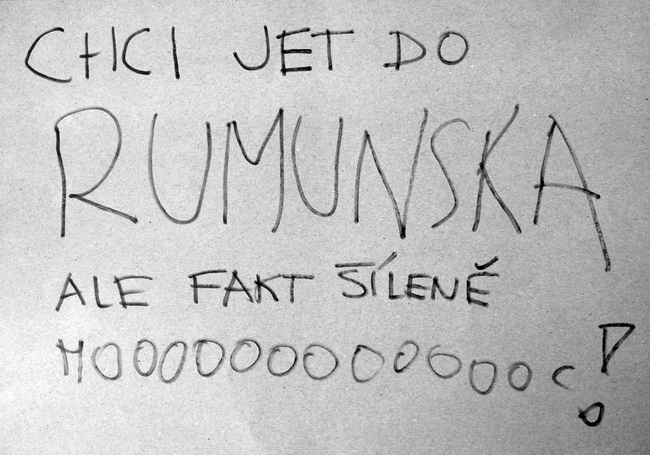 CHCI JET DO
RUMUNSKA
ALE FAKT ŠÍLENĚ
MOOOOOOOOOOOOOC!